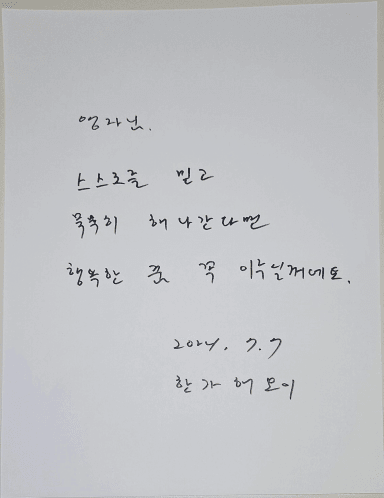 영자님.
스스로를 믿고
묵묵히 해 나간다면
행복한 꿈 꼭 이루실꺼에요.
2024. 7. 7
한가해 모이